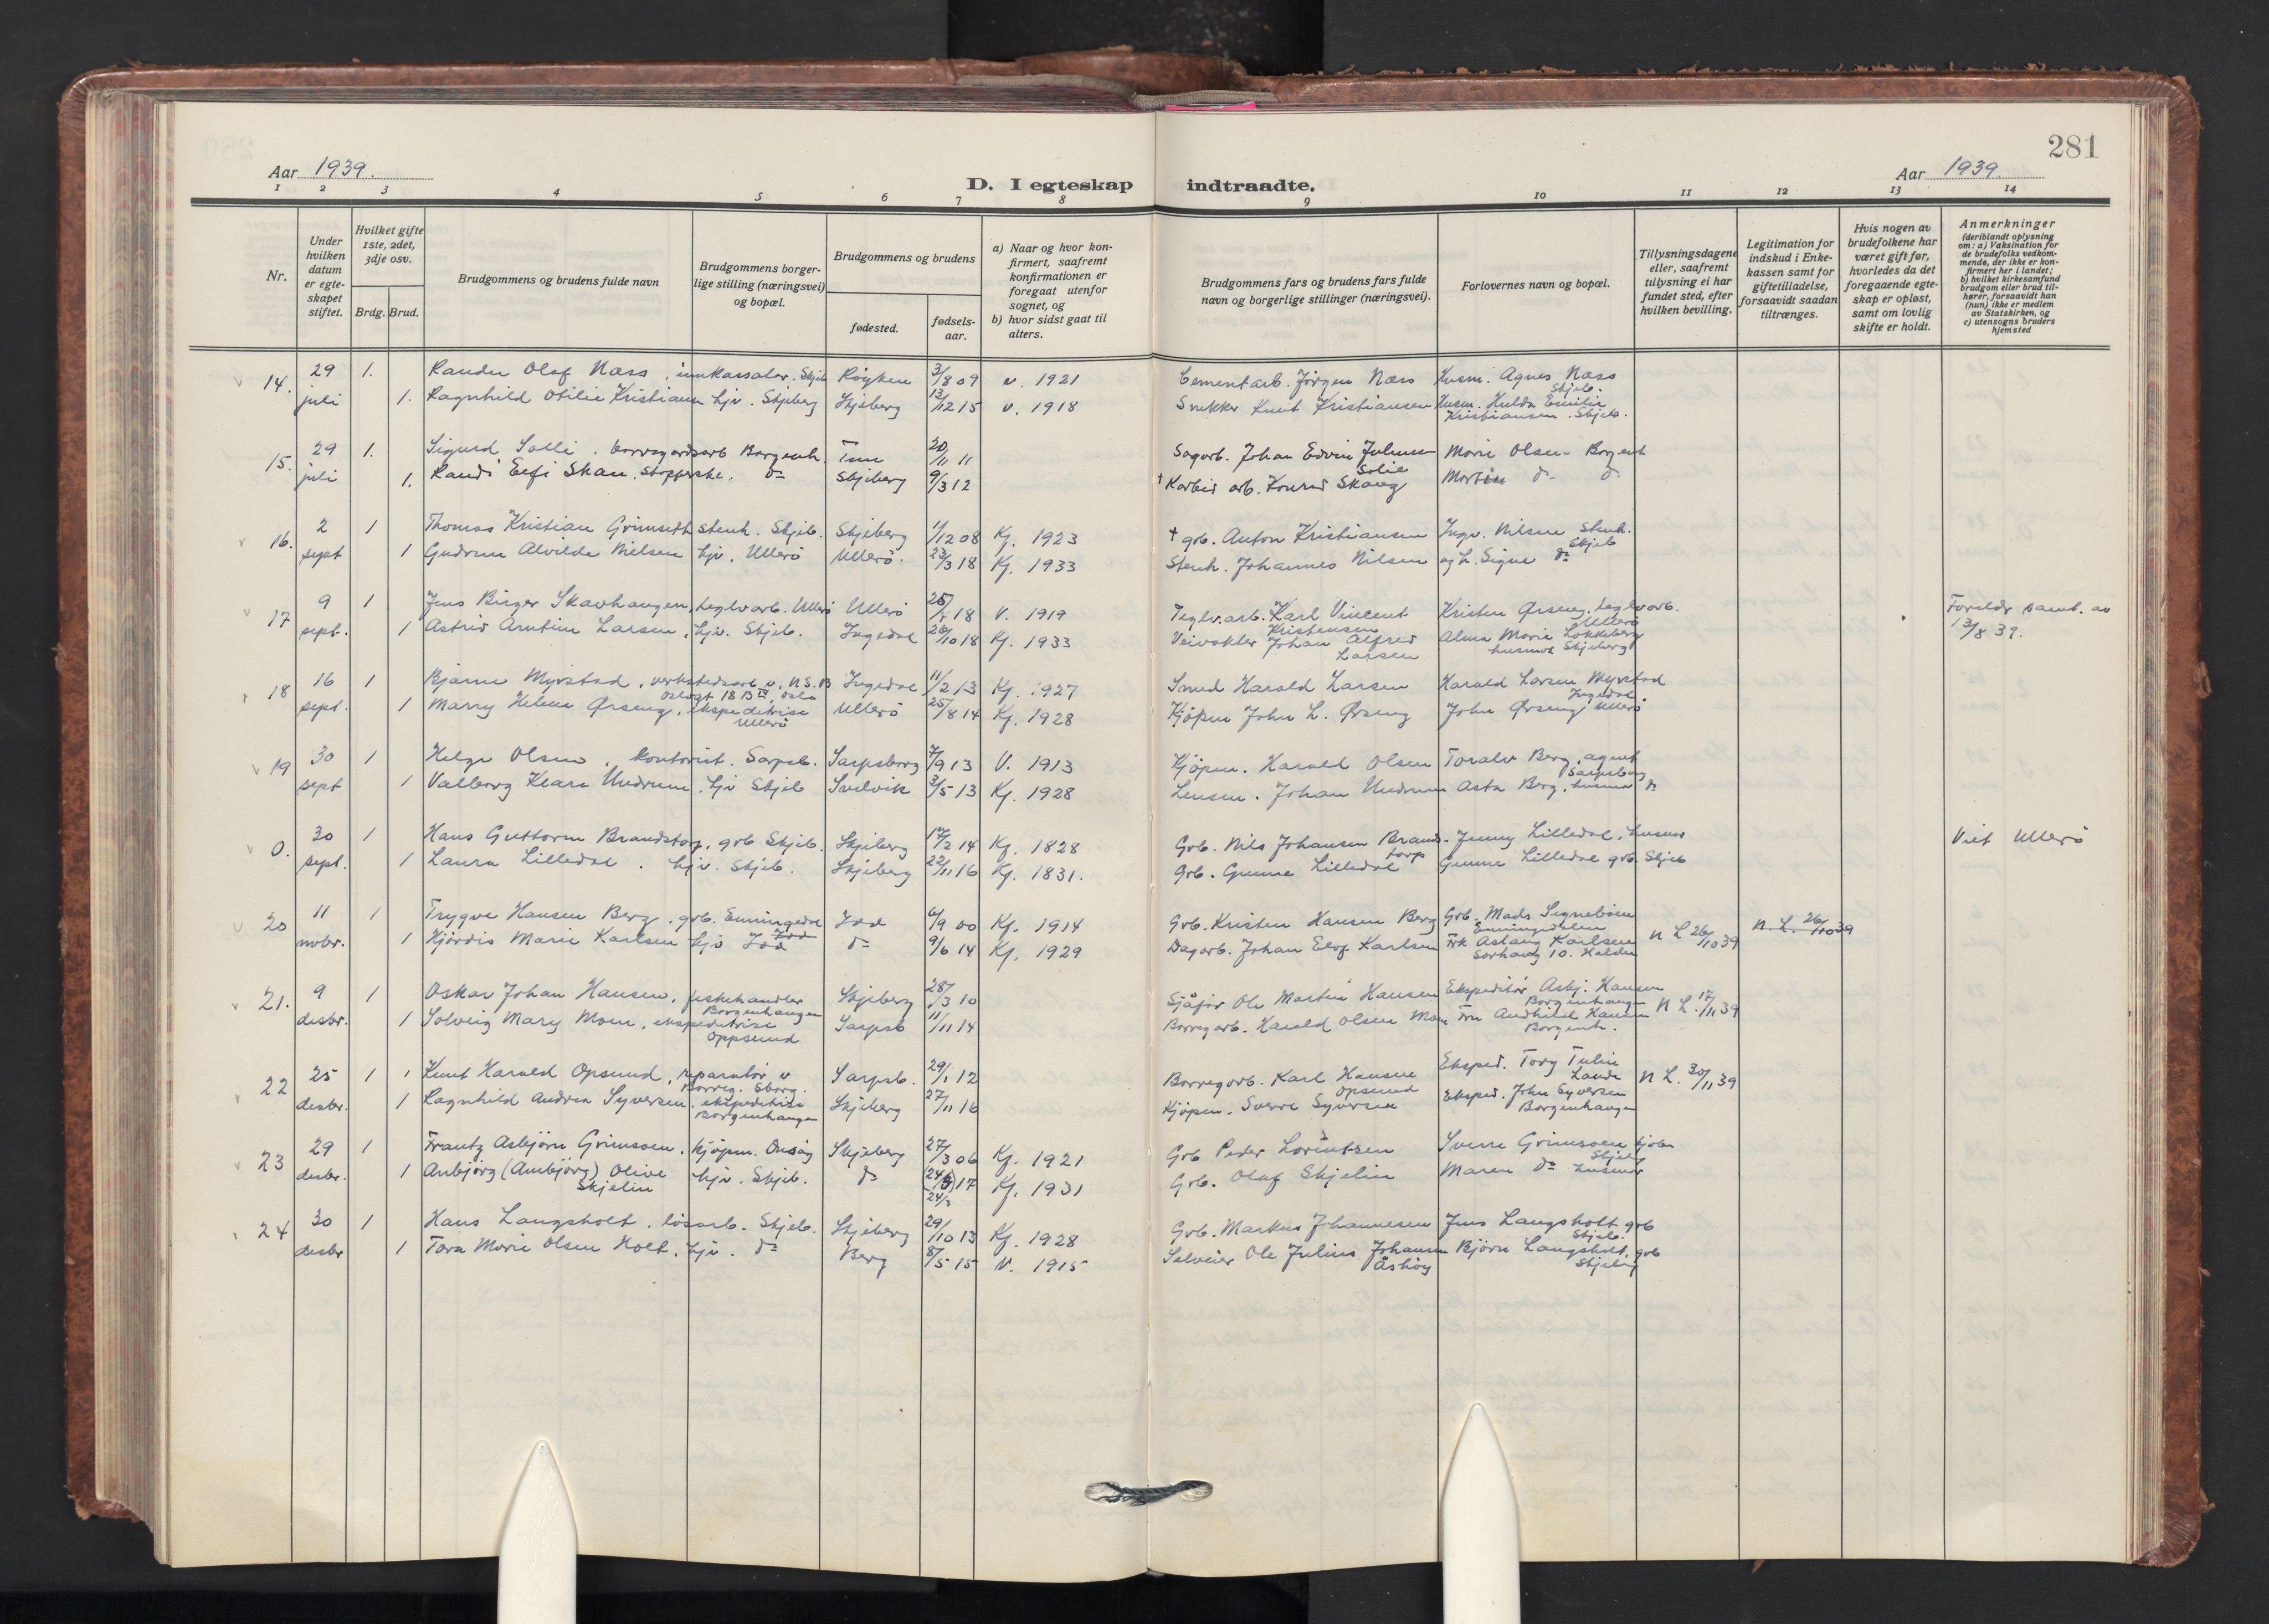 281
Aar 1939.
D. I egteskap indtraadte.
Aar 1939.
1 2 3 4 5 6 7 8 9 10 11 12 13 14
Nr.
Under hvilken datum er egteskapet stiftet.
Hvilket gifte 1ste, 2det, 3dje osv.
Brdg. Brud.
Brudgommens og brudens fulde navn
Brudgommens borgerlige stilling (næringsvei) og bopæl.
Brudgommens og brudens
fødested.
fødselsaar.
a) Naar og hvor konfirmert, saafremt konfirmationen er foregaat utenfor sognet, og
b) hvor sidst gaat til alters.
Brudgommens fars og brudens fars fulde navn og borgerlige stillinger (næringsvei).
Forlovernes navn og bopæl.
Tillysningsdagene eller, saafremt tillysning ei har fundet sted, efter hvilken bevilling.
Legitimation for indskud i Enkekassen samt for giftetilladelse, forsaavidt saadan tiltrænges.
Hvis nogen av brudefolkene har været gift før, hvorledes da det foregaaende egteskap er opløst, samt om lovlig skifte er holdt.
Anmerkninger (deriblandt oplysning om: a) Vaksination for de brudefolks vedkommende, der ikke er konfirmert her i landet; b) hvilket kirkesamfund brudgom eller brud tilhører, forsaavidt han (hun) ikke er medlem av Statskirken, og c) utensogns bruders hjemsted
14. 29 1. Randu Olaf Næss, innkassator. Skjeb Røyken 3/8 09 v. 1921 Cementarb. Jörgen Næss Husm. Agnes Næss Skjeb.
juli 1. Ragnhild Otilie Kristiansen hjv. Skjeberg Skjeberg 13/12 15 v. 1918 Snekker Knut Kristiansen Husm. Hulda Emilie Kristiansen. Skjeb.
15. 29 1. Sigurd Solli, borregardsarb Borgenh. Tune 20/11 11 Sagarb. Johan Edvin Julius Solie Marie Olsen - Borgenh
juli 1. Randi Elfi Skau, stopperske. do Skjeberg 9/3 12 † Karbid arb. Konrad Skaug Martin do do
16. 2 1 Thomas Kristian Grimseth stenh. Skjeb. Skjeberg 1/12 08 Kj. 1923 † grb. Anton Kristiansen Ingv. Nilsen Stenh. Skjeb
sept 1 Gudrun Alvilde Nielsen hjv. Ullerö Ullerö. 23/3 18 Kj. 1933 Stenh. Johannes Nilsen og h. Signe do
17 9 1 Jens Birger Skavhaugen, teglv arb. Ullerö Ullerö 18 V. 1919 Teglv. arb. Karl Vincent Kristensen Kristen Ørseng, teglv arb. Ullerö Foreldr samt. av
sept. 1 Astrid Arntine Larsen, hjv. Skjeb. Ingedal 26/10 18 Kj. 1933 Veivokter Johan Alfred Larsen Alma Marie Lokkeberg husmor Skjeberg 13/8 39.
18 16 1 Bjarne Myrstad, verkstedsarb v. N.S.B Oslogt 18 B III, Oslo Ingedal 11/2 13 Kj. 1927 Smed Harald Larsen Harald Larsen Myrstad Ingedal.
sept. 1 Marry Helene Ørseng, ekspeditrise Ullerö Ullerö 25/8 14 Kj. 1928 Kjöpm John L. Ørseng John Ørseng Ullerö
19 30 1 Helge Olsen, kontorist. Sarpsb. Sarpsborg 7/9 13 V. 1913 Kjöpm. Harald Olsen Toralv Berg, agent Sarpsborg
sept 1 Valborg Klara Undrum. hjv Skjeb Svelvik 3/5 13 Kj. 1928 Lensm. Johan Undrum Asta Berg, husmor do
0. 30 1 Hans Guttorm Brandstorp, grb Skjeb. Skjeberg 12/2 14 Kj. 1828 Grb. Nils Johansen Brandstorp Jenny Lilledal, husmor Viet Ullerö
sept. 1 Laura Lilledal. hjv. Skjeb. Skjeberg 22/11 16 Kj. 1831. Grb. Gunne Lilledal Gunne Lilledal grb. Skjeb
20 11 1 Trygve Hansen Berg, grb. Enningedal Idd Idd 6/9 00 Kj. 1914 Grb. Kristen Hansen Berg Grb. Mads Segnebøen Enningedalen N L 26/10 39 N. L. 26/10 39
novbr. 1 Hjördis Marie Karlsen hjv Idd do 9/6 14 Kj. 1929 Dagarb. Johan Elof Karlsen Frk Aslaug Karlsen Sorhaug 10. Halden
21. 9 1 Oskar Johan Hansen, fiskehandler Borgenhaugen Skjeberg 28/3 10 Sjåför Ole Martin Hansen Ekspeditör Asbj. Hansen Borgenhaugen N L. 17/11 39
desbr. 1 Solveig Mary Moen, ekspeditrise Oppsund Sarpsb 11/11 14 Borregarb. Harald Olsen Moen Fru Andhild Hansen Borgenh.
22 25 1 Knut Harald Opsund, reparatör v Borreg. Sborg. Sarpsb. 29/1 12 Borregarb. Karl Hansen Opsund Eksped. Torg Tulin Lande N L. 30/11 39
desbr. 1 Ragnhild Andrea Syversen, ekspeditrise Borgenhaugen Skjeberg 27/11 16 Kjöpm. Sverre Syversen Eksped. John Syversen Borgenhaugen
23 29 1 Frantz Asbjörn Grimsoen, kjöpm. Onsöy Skjeberg 27/3 06 Kj. 1921 Grb Peder Lorentsen Sverre Grimsoen Skjeberg
desbr. 1 Anbjörg (Ambjörg) Olive Skjelin hjv. Skjeb. do 17 24/3 Kj. 1931 Grb. Olaf Skjelin Maren do husmor
24 30 1 Hans Langsholt. lösarb. Skjeb. Skjeberg 29/10 13 Kj. 1928 Grb. Markus Johannesen Jens Langsholt grb Skjeb.
desbr 1 Tora Marie Olsen Holt, hjv. do Berg 8/5 15 V. 1915 Selveier Ole Julius Johansen Åshöy Björn Langsholt, grb Skjeberg